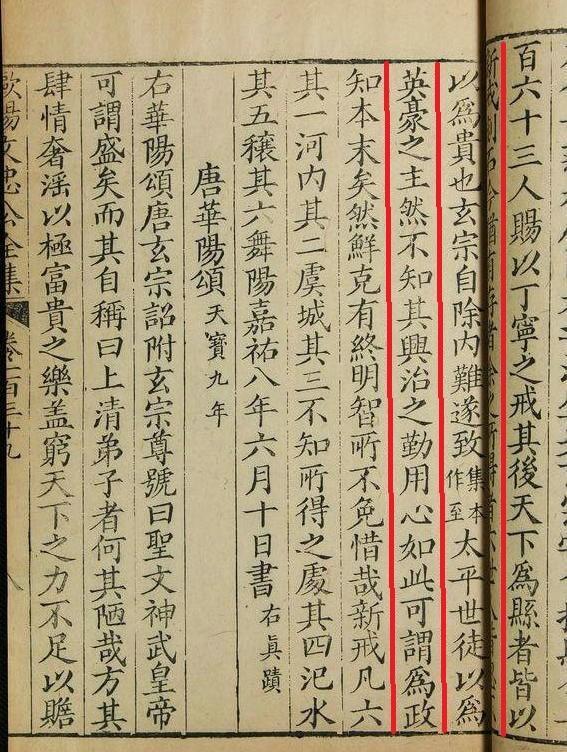 百六十三人賜以丁寧之戒其後天下爲縣者皆以
新戒刻石今猶有存者余之所得者
以爲貴也玄宗自除內難遂致集本作至太平世徒以爲
英豪之主然不知其興治之勤用心如此可謂爲政
知本末矣然鮮克有終明智所不免惜哉新戒凡六
其一河內其二虞城其三不知所得之處其四汜水
其五穰其六舞陽嘉祐八年六月十日書右眞蹟
唐華陽頌天寶九年
右華陽頌唐玄宗詔附玄宗尊號曰聖文神武皇帝
可謂盛矣而其自稱曰上清弟子者何其陋哉方其
肆情奢淫以極富貴之樂盖窮天下之力不足以贍
歐陽文忠公全集 卷一百三十九 八